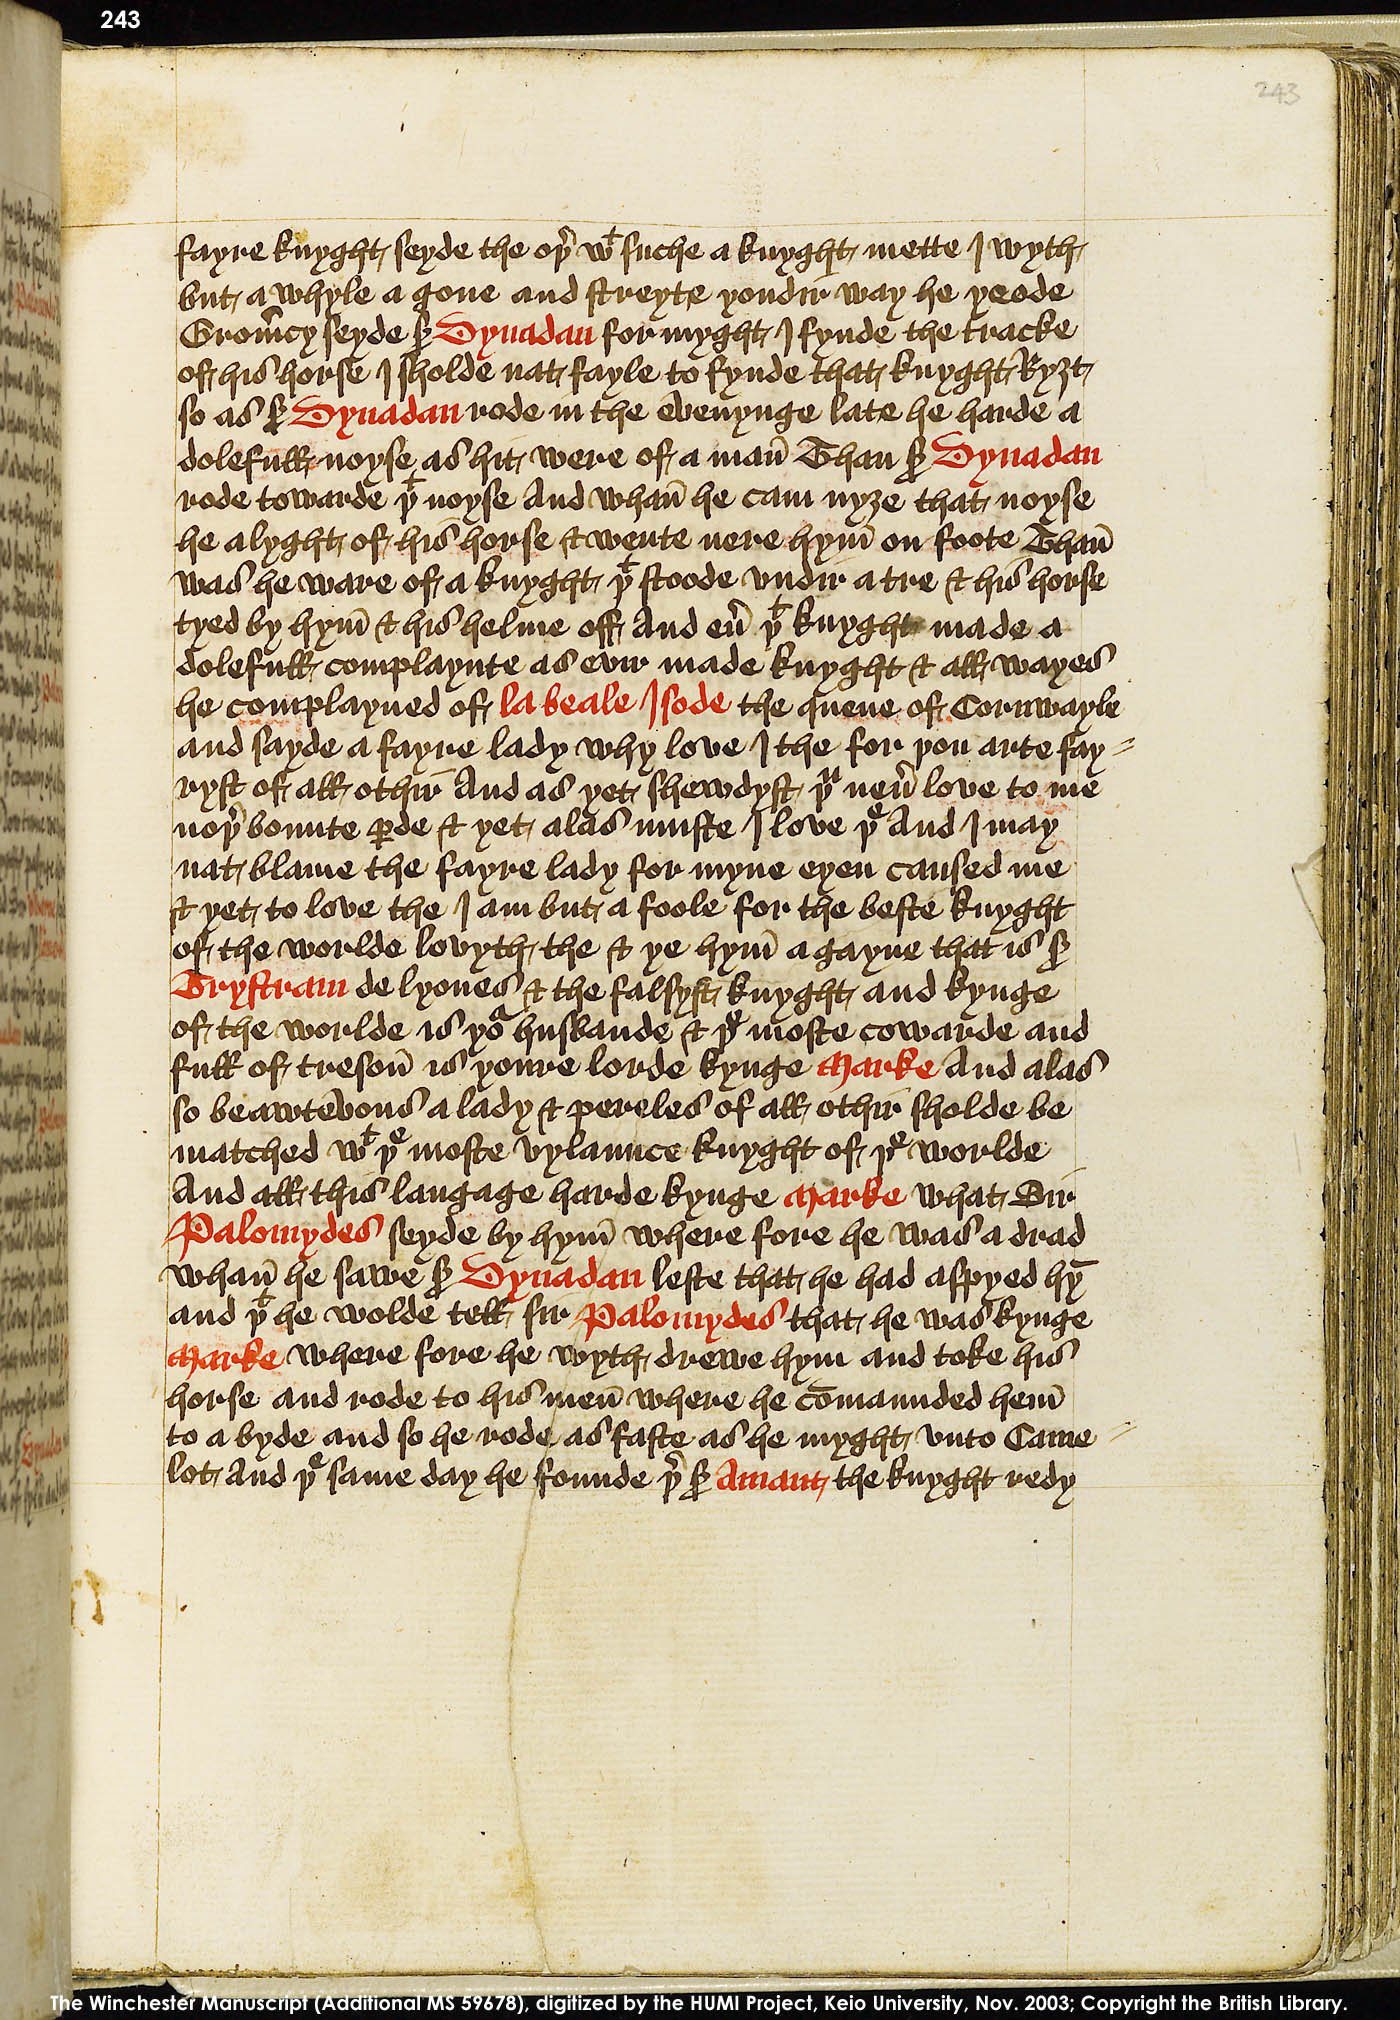 243
243
fayre knyght seyde the oþ̉ wᵗ suche a knyght mette I wyth
but a whyle a gone and streyte yondir way he yeode
Grom̄cy seyde ẜ Dynadan for myght I fynde the tracke
of his horse I sholde nat fayle to fynde that knyght Ryȝt
so as ẜ Dynadan rode in the evenynge late he harde a
dolefull noyse as hit were of a man̄ Than ẜ Dynadan
rode towarde þᵗ noyse And whan̄ he cam nyȝe that noyse
he alyght of his horse & wente nere hym̄ on foote Than̄
was he ware of a knyght þᵗ stoode vndir a tre & his horse
tyed by hym̄ & his helme off And eủ þᵗ knyght made a
dolefull complaynte as evir made knyght & all wayes
he complayned of la beale Isode the quene of Cornwayle
and sayde a fayre lady why love I the for þou arte fay=
ryst of all othir And as yet shewdyst þᵘ neủ love to me
noþ̉ bounte ꝑde & yet alas muste I love þᵉ And I may
nat blame the fayre lady for myne eyen caused me
& yet to love the I am but a foole for the beste knyght
of the worlde lovyth the & ye hym̄ a gayne that is ẜ
Trystram de lyones & the falsyst knyght and kynge
of the worlde is yoʳ husbande & þᵉ moste cowarde and
full of treson̄ is youre lorde kynge Marke And alas
so beawtevous a lady & pereles of all othir sholde be
matched wᵗ þᵉ moste vylaunce knyght of þᵉ worlde
And all this langage harde kynge Marke what Sir
Palomydes seyde by hym̄ where fore he was a drad
whan̄ he sawe ẜ Dynadan leste that he had aspyed hȳ
and þᵗ he wolde tell sir Palomydes that he was kynge
Marke where fore he wyth drewe hym and toke his
horse and rode to his men̄ where he cōmaunded hem̄
to a byde and so he rode as faste as he myght vnto Came=
lot And þᵉ same day he founde þ̉ ẜ Amant the knyght redy
The Winchester Manuscript (Additional MS 59678), digitized by the HUMI Project, Keio University, Nov. 2003; Copyright the British Library.